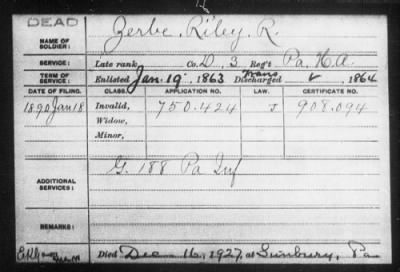 DEAD
NAME OF SOLDIER: Zerbe, Riley, R.
SERVICE: Late rank, Co. D, 3, Reg't Pa. H.A.
TERM OF SERVICE: Enlisted Jan. 19, 1863 Trans Discharged , 1864
DATE OF FILING. CLASS. APPLICATION NO. LAW. CERTIFICATE NO.
1890 Jan 18 Invalid, 750.424 J 908.094
Widow,
Minor,
ADDITIONAL SERVICES: G. 188 Pa Inf
REMARKS:
Died Dec 16, 1927, at Sunbury, Pa